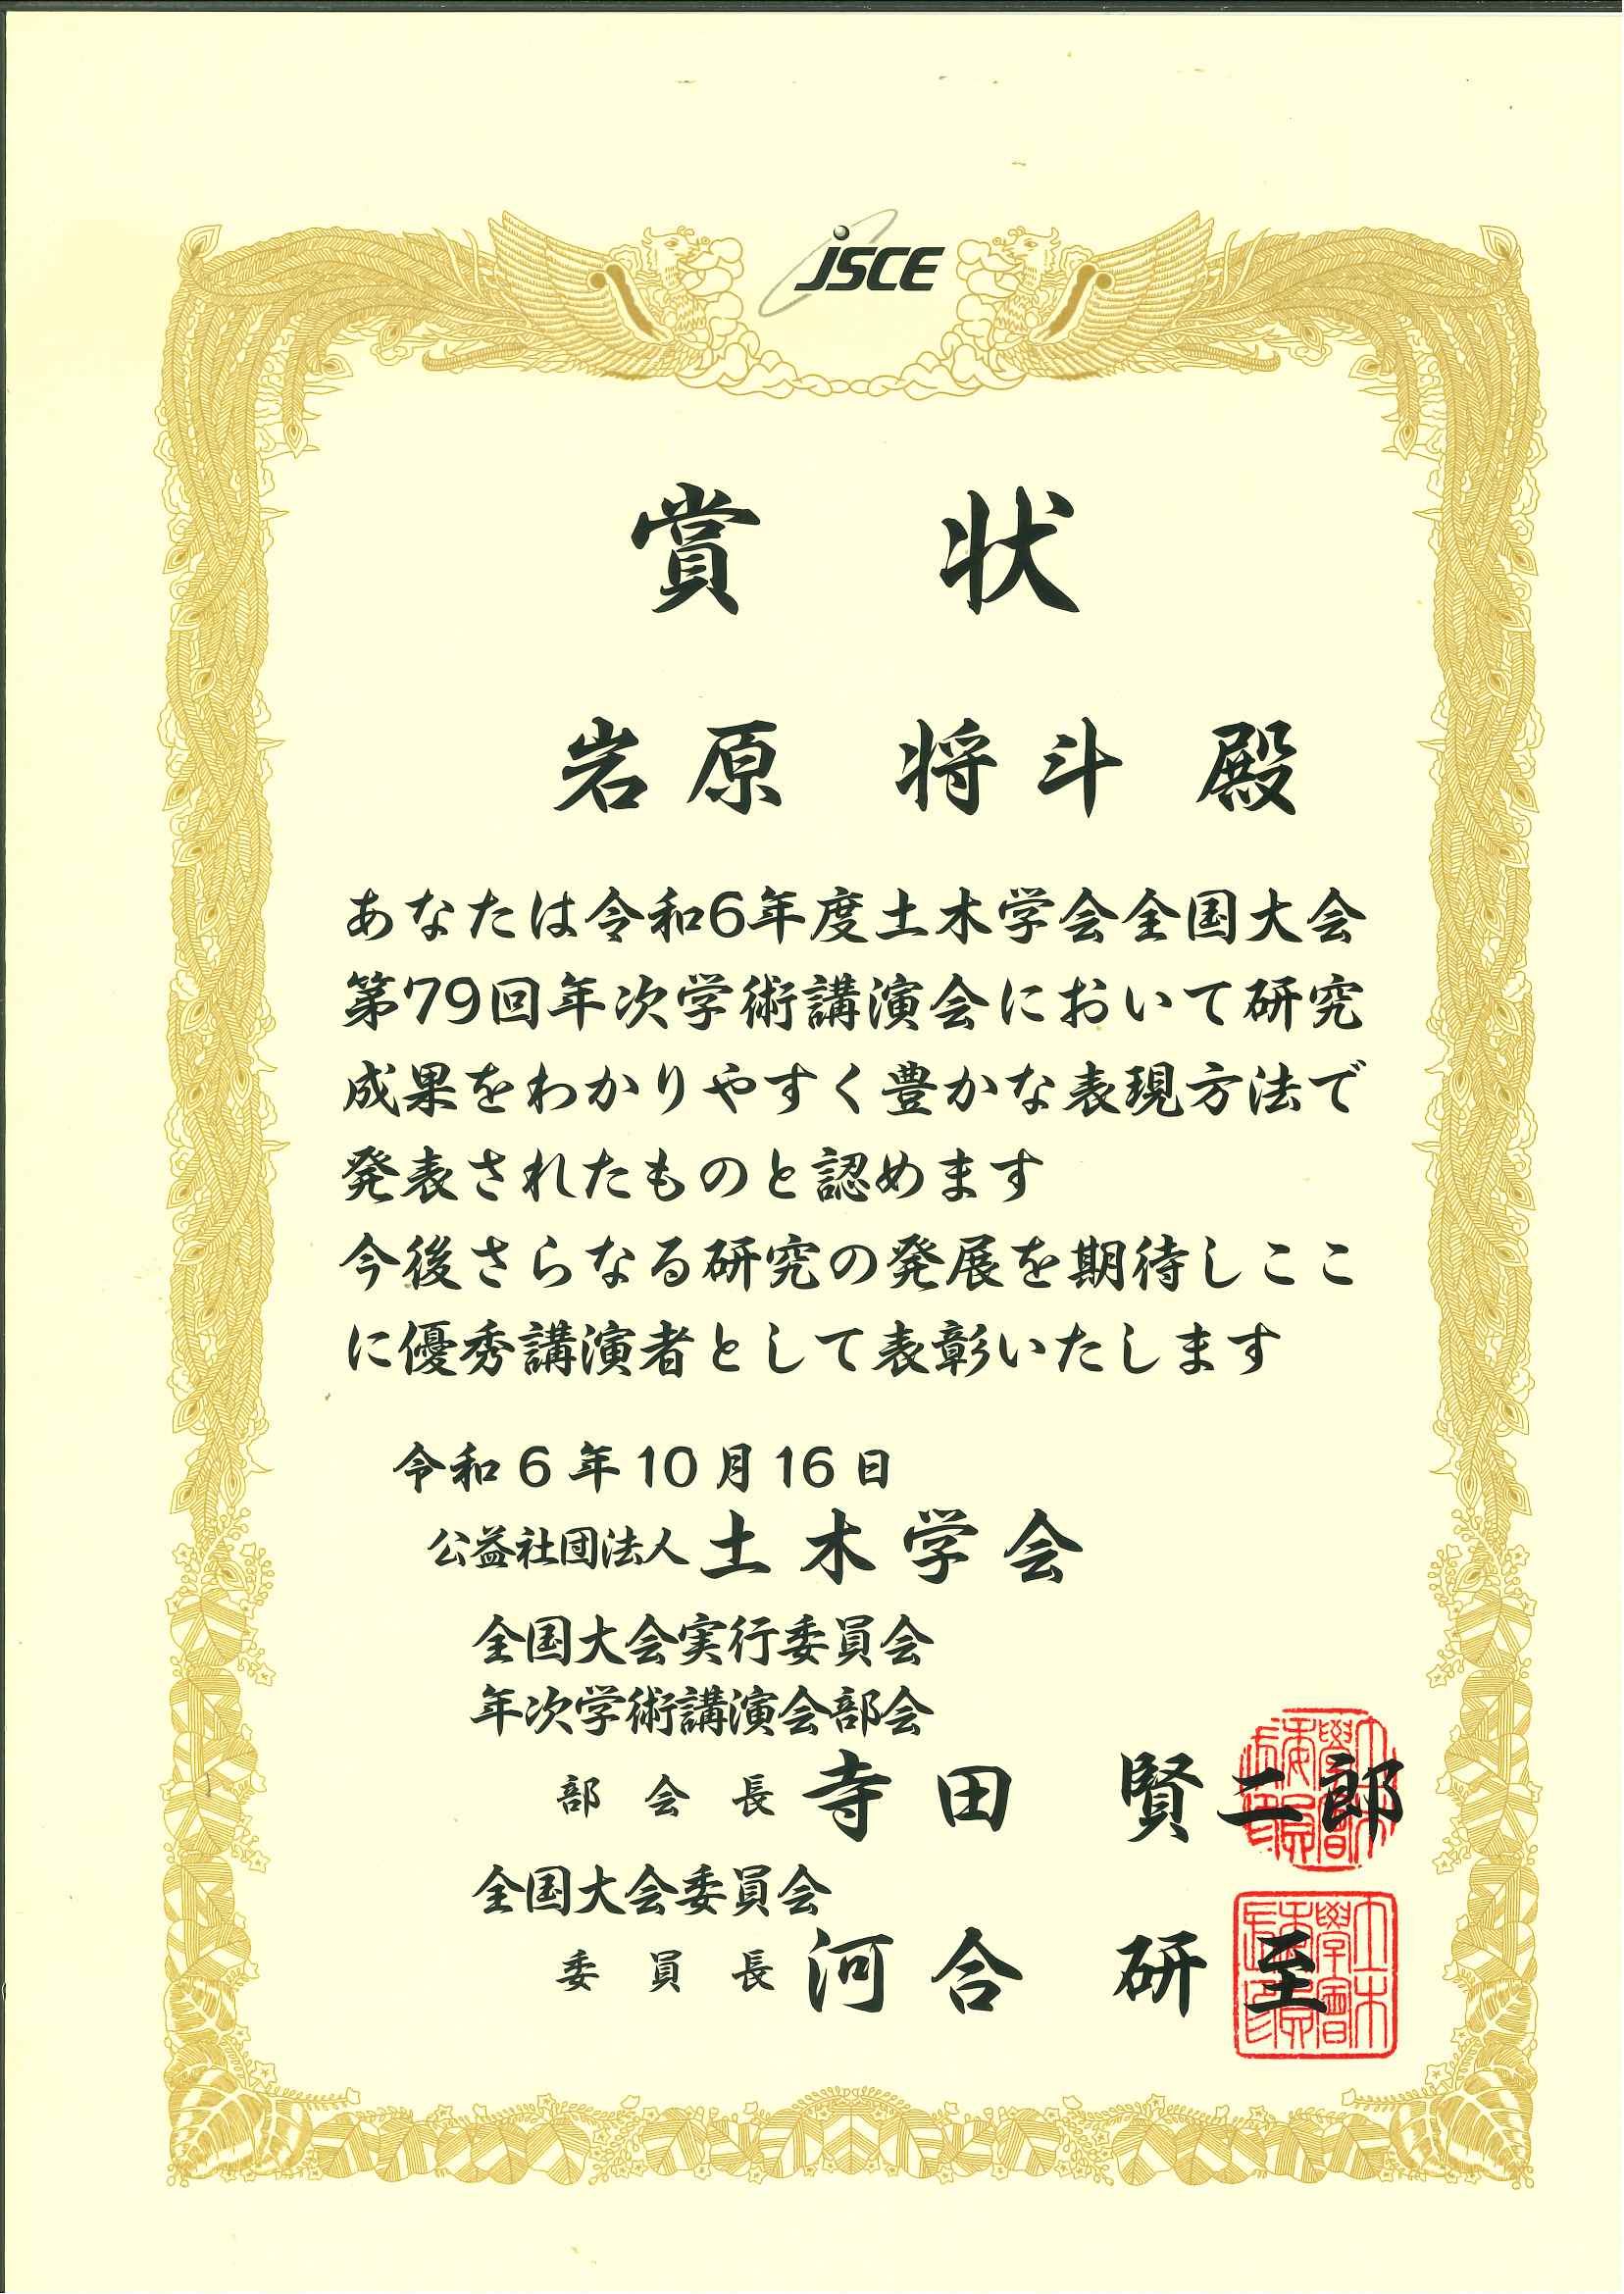 JSCE
賞 状
岩原 将斗 殿
あなたは令和6年度土木学会全国大会
第79回年次学術講演会において研究
成果をわかりやすく豊かな表現方法で
発表されたものと認めます
今後さらなる研究の発展を期待しここ
に優秀講演者として表彰いたします
令和6年10月16日
公益社団法人 土木学会
全国大会実行委員会
年次学術講演会部会
部会長 寺田 賢二郎
全国大会委員会
委員長 河合 研至